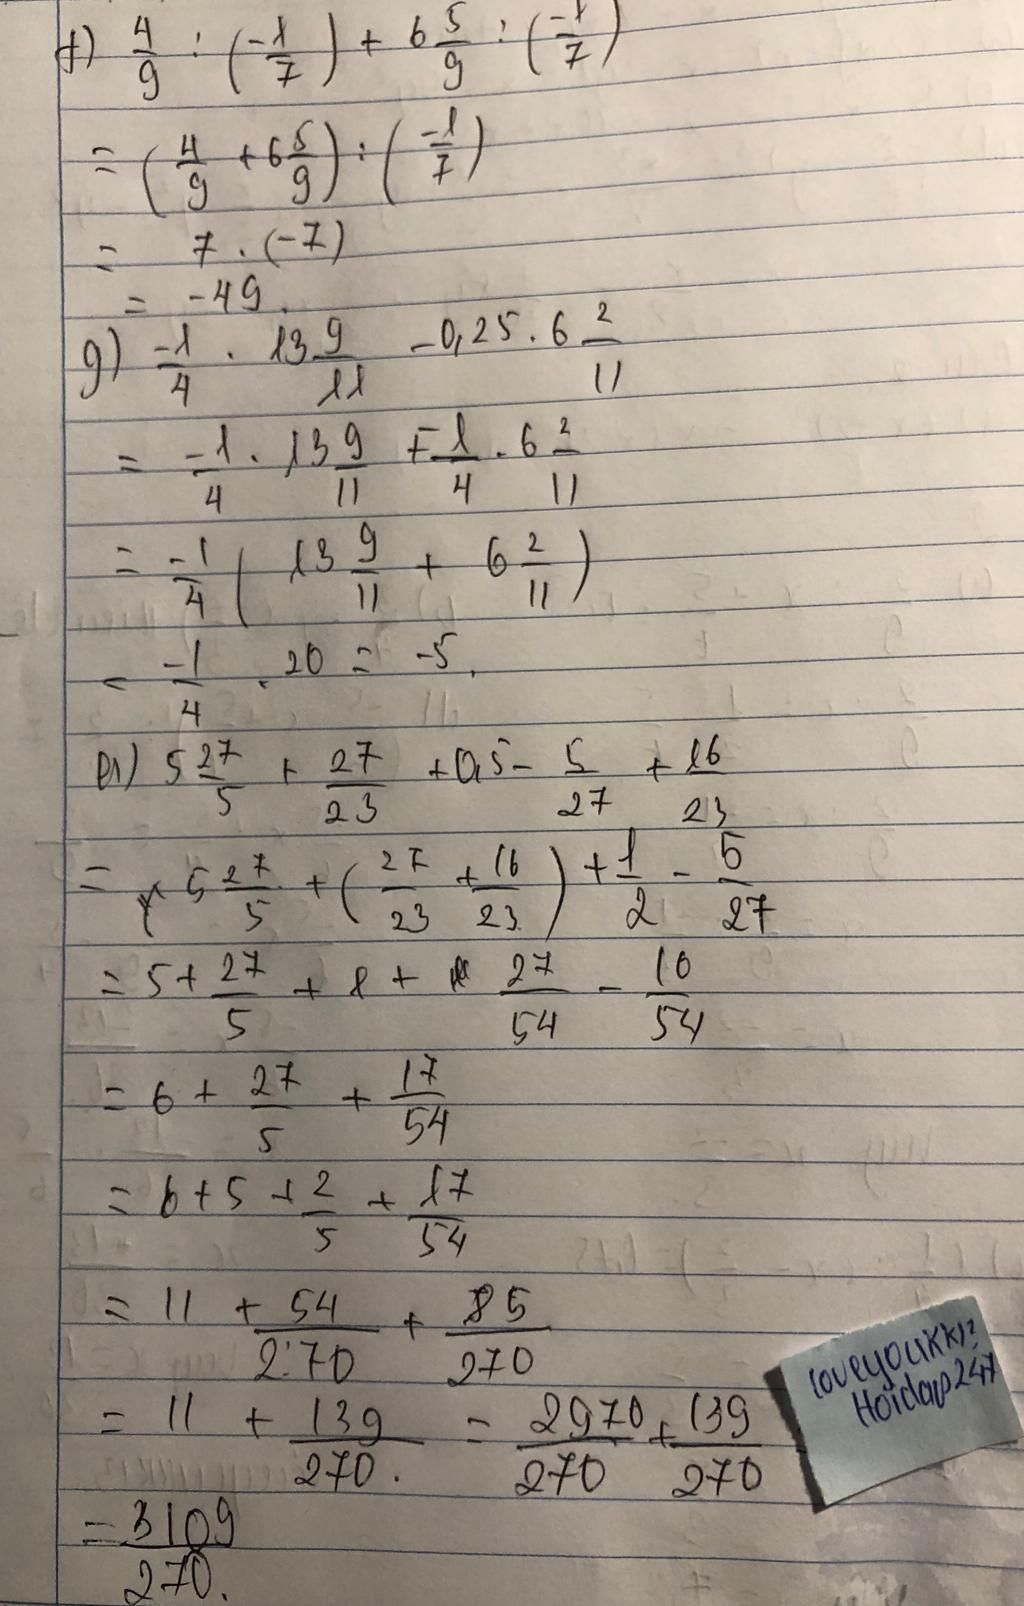 f) 4/9 : (-1/7) + 6 5/9 : (-1/7)
= (4/9 + 6 5/9) : (-1/7)
= 7 . (-7)
= -49.
g) -1/4 . 13 9/11 - 0,25 . 6 2/11
= -1/4 . 13 9/11 + -1/4 . 6 2/11
= -1/4 ( 13 9/11 + 6 2/11 )
= -1/4 . 20 = -5.
5 27/5 + 27/23 + 0,5 - 5/27 + 16/23
= 5 27/5 + (27/23 + 16/23) + 1/2 - 5/27
= 5 + 27/5 + 1 + 27/54 - 10/54
= 6 + 27/5 + 17/54
= 6 + 5 + 2/5 + 17/54
= 11 + 54/270 + 85/270
= 11 + 139/270. = 2970/270 + 139/270
= 3109/270.
loveyoukk12
Hoidap247